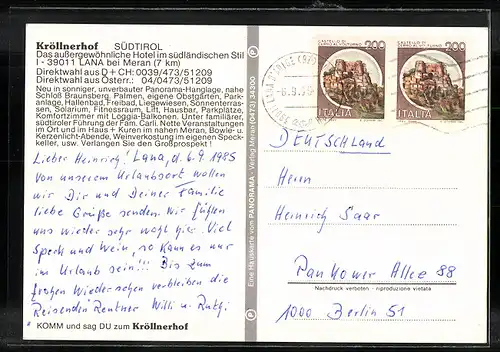 Kröllnerhof SÜDTIROL
Das außergewöhnliche Hotel im südländischen Stil
I - 39011 LANA bei Meran (7 km)
Direktwahl aus D + CH: 0039/473/51209
Direktwahl aus Österr.: 04/0473/51209
Neu in sonniger, unverbauter Panorama-Hanglage, nahe
Schloß Braunsberg, Palmen, eigene Obstgärten, Park-
anlage, Hallenbad, Freibad, Liegewiesen, Sonnenterras-
sen, Solarium, Fitnessraum, Lift, Hausbar, Parkplätze.
Komfortzimmer mit Loggia-Balkonen. Unter familiärer,
südtiroler Führung der Fam. Carli. Nette Veranstaltungen
im Ort und im Haus + Kuren im nahen Meran, Bowle- u.
Kerzenlicht-Abende, Weinverkostung im eigenen Speck-
keller, usw. Verlangen Sie den Großprospekt!
Lieber Heinrich! Lana, d. 6.9.1985
Von unserem Urlaubsort wollen
wir Dir und Deiner Familie
liebe Grüße senden. Wir fühlen
uns wieder sehr wohl hier. Viel
Speck und Wein, so kann es nur
im Urlaub sein!!! Bis zum
frohen Wiedersehen verbleiben die
Reisenden Rentner Willi u. Ruth
KOMM und sag DU zum Kröllnerhof
Eine Hauskarte von PANORAMA - Verlag Meran (0473) 34330
P
P
CASTELLO DI
200
ITALIA
CASTELLO DI
200
ITALIA
DEUTSCHLAND
Herrn
Heinrich Saar
Pankower Allee 88
Nachdruck verboten - riproduzione vietata
1000 Berlin 51